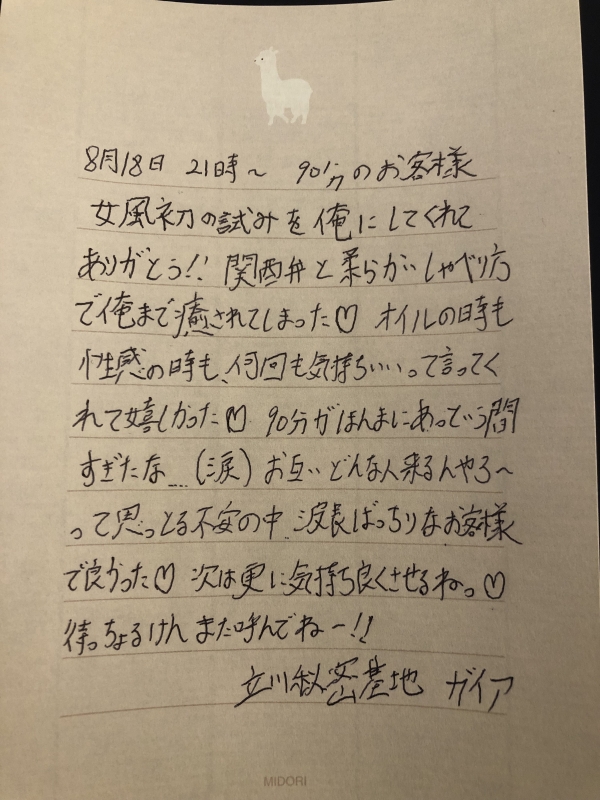 8月18日 21時～ 90分のお客様
女風初の試みを俺にしてくれて
ありがとう!! 関西弁と柔らかいしゃべり方
で俺まで癒されてしまった♡ オイルの時も
性感の時も、何回も気持ちいいって言ってく
れて嬉しかった♡ 90分がほんまにあっという間
すぎたな...(涙) お互いどんな人来るんやろ～
って思っとる不安の中、波長ばっちりなお客様
で良かった♡ 次は更に気持ち良くさせるね。♡
待っちょるけん また呼んでねー!!
立川秘密基地 ガイア
MIDORI